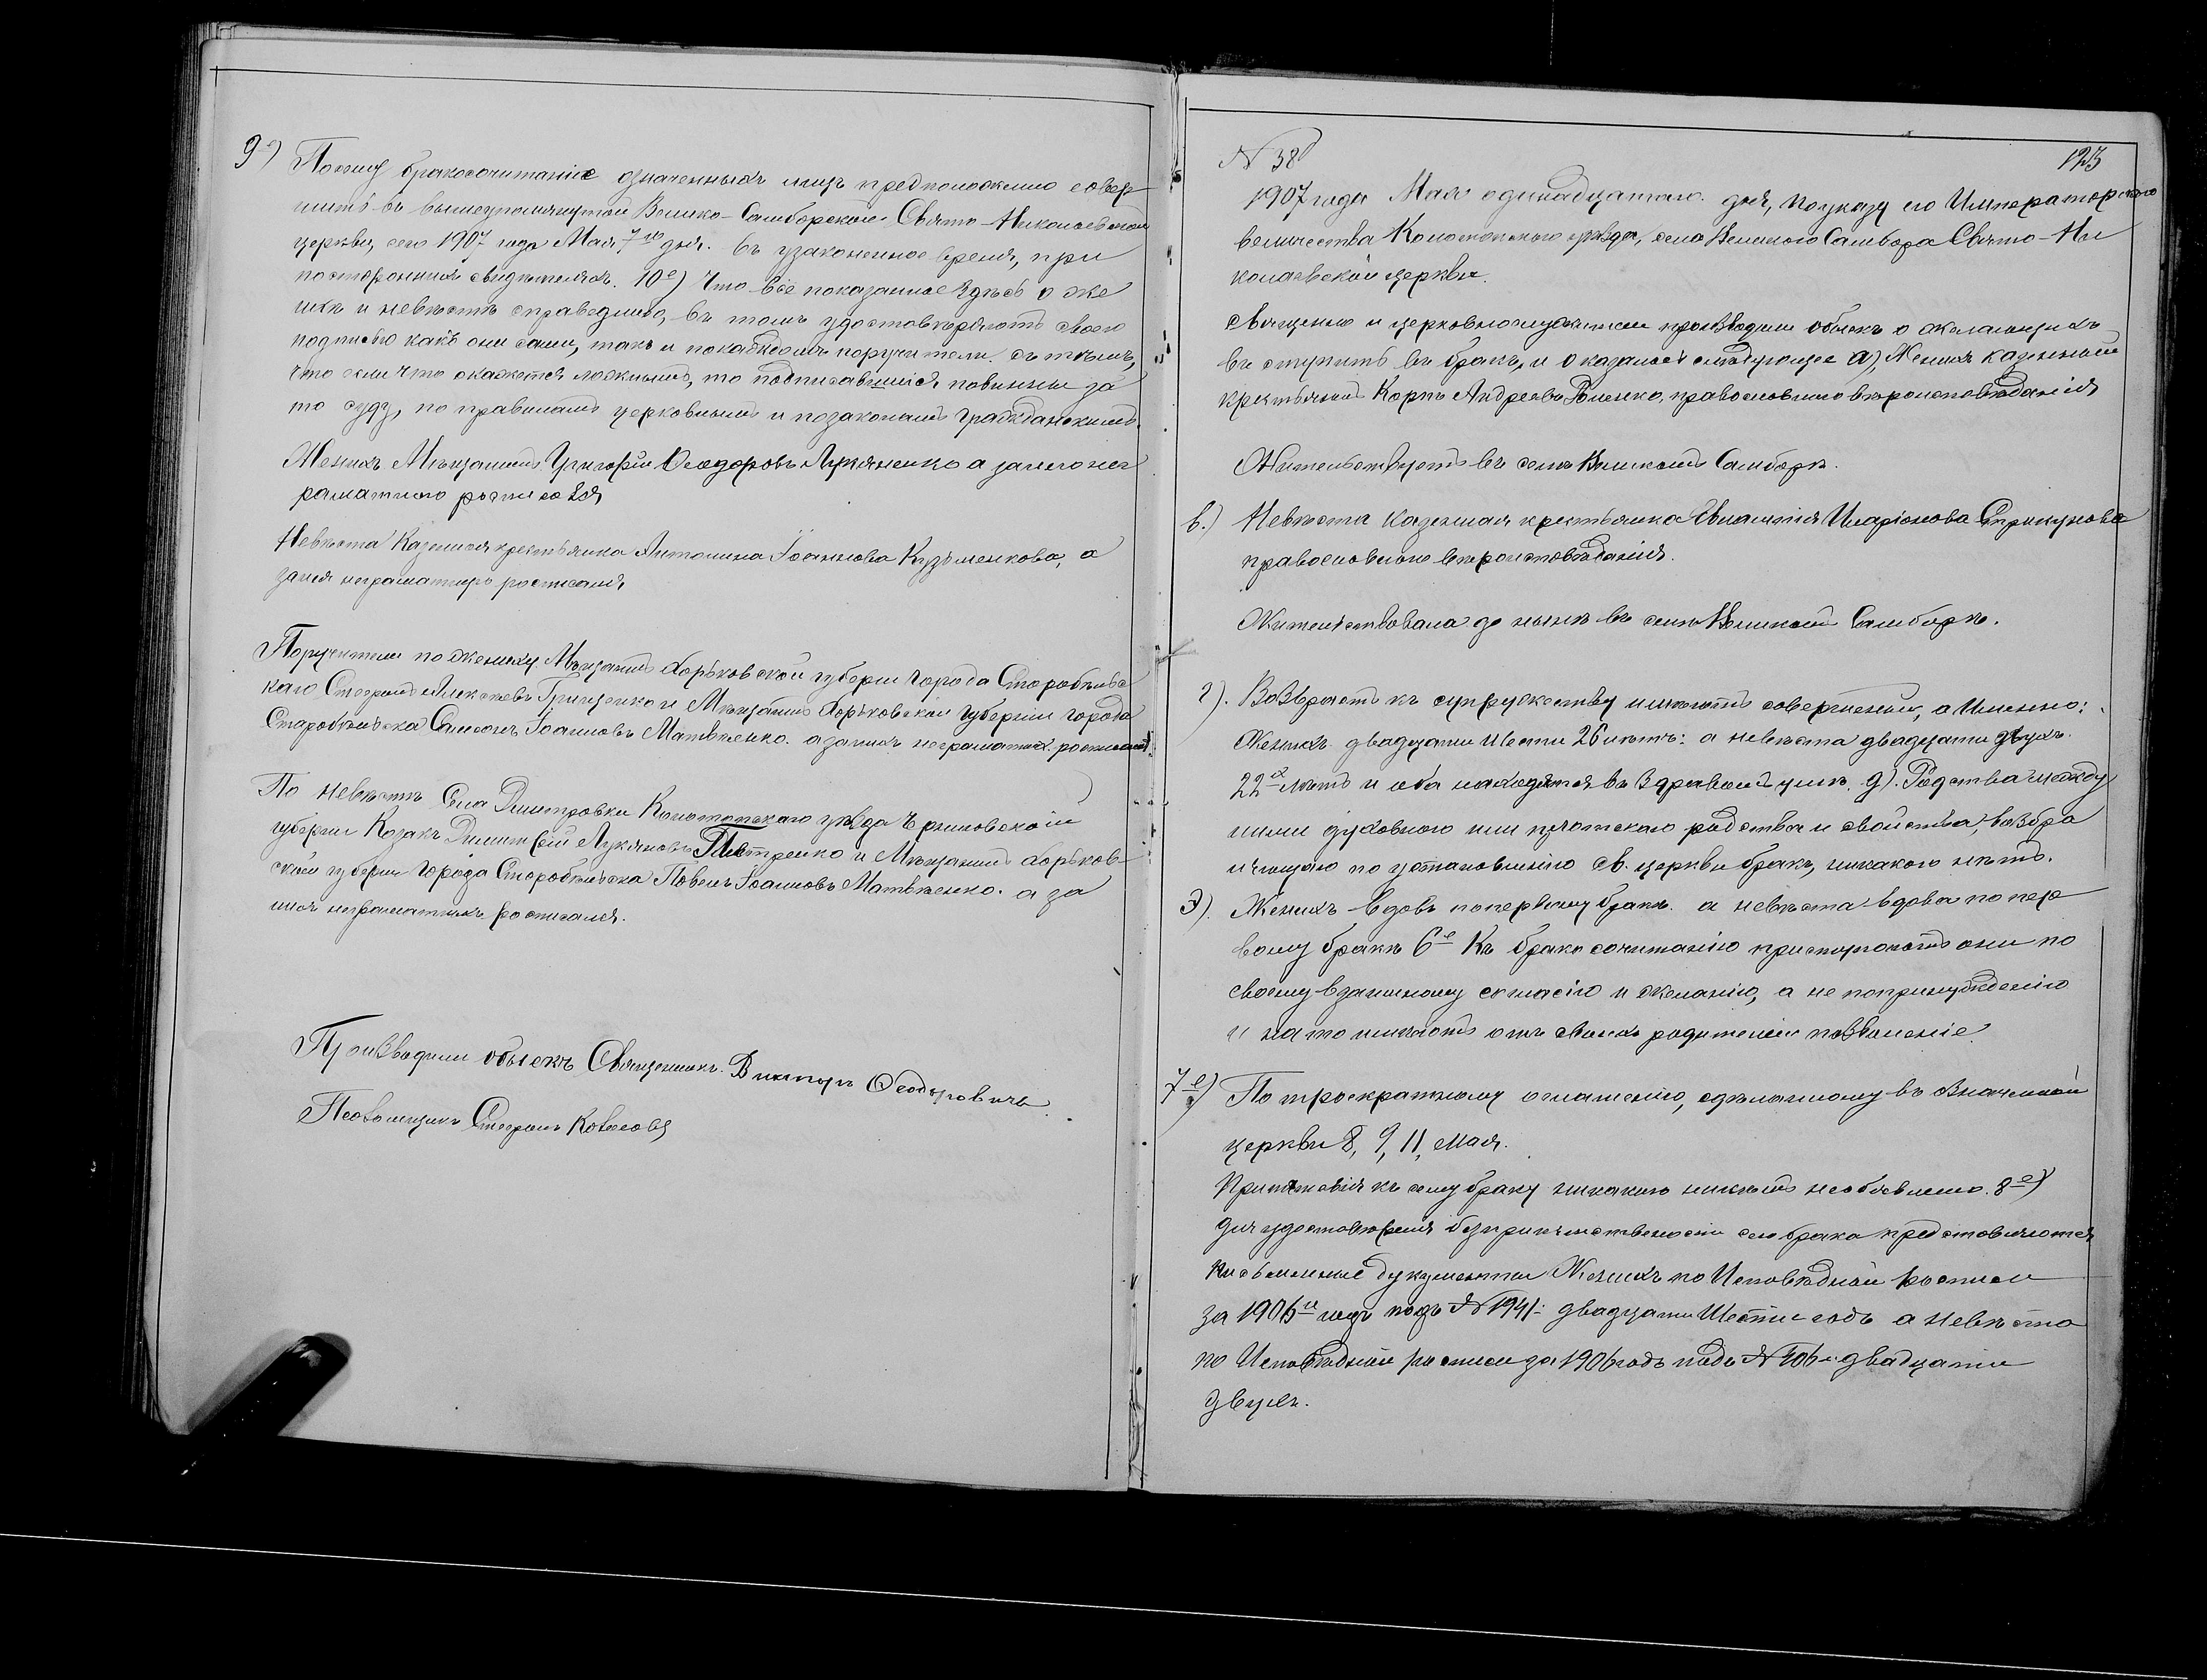 9е) Посему бракосочитаніе означенныхъ лицъ предположено совер
шить въ вышеупомянутой Велико-Самборской Свято-Николаевской
церкви, сего 1907 года Мая 7го дня. въ узаконенное время, при
постороннихъ свидѣтеляхъ. 10е) Что всё показанное здѣсь о же
нихѣ и невѣстѣ справедливо, въ томъ удостовѣряютъ своею
подписью какъ они сами, такъ и по каждомъ поручители, съ тѣмъ,
что если что окажется ложнымъ, то подписавшіеся повинны за
то суду, по правиламъ церковнымъ и позаконамъ гражданскимъ.
Женихъ Мѣщанинъ Григорій Ѳеодоровъ Лукяненко а занего нег
раматного росписался
Невѣста Казенная крестьянка Антонина Іоаннова Кузьменкова, а
занея неграматную росписался
Поручители по жениху Мѣщанинъ Харьковской губерніи города Старобѣльс
каго Стефанъ Алексѣевъ Грищенко и Мѣщанинъ Харьковской губерніи города
Старобѣльска Самсонъ Іоанновъ Матвѣенко. а занихъ неграматныхъ росписался
По невѣстѣ Села Дмитровки Конотопскаго уѣзда Черниговской
губерніи Козакъ Димитрій Лукяновъ Петренко и Мѣщанинъ Харьков-
ской губерніи Города Старобѣльска Павелъ Іоанновъ Матвѣенко. а за
нихъ неграматныхъ росписался.
Производили обыскъ Священникъ Викторъ Ѳеодоровичъ
Псаломщикъ Стефанъ
№ 38 123
1907 года Мая одинадцатаго дня, по указу его Императорскаго
величества Конотопскаго уѣзда, села Великого Самбора Свято-Ни
колаевской церкви.
Священно и церковнослужители производили обыскъ о желающихъ
вступить въ бракъ, и оказалось слѣдующее а), Женихъ казенный
крестьянинъ Карпъ Андреевъ православнаго вѣроисповѣданія
Жительствуетъ въ селѣ Великомъ Самборѣ.
в.) Невѣста казенная крестьянка Иларіонова
православного вѣроисповѣданія.
Жительствовала до нынѣ въ селѣ Великомъ Самборѣ.
г). Возврастъ къ супружеству имѣютъ совершенный, а Именно:
Женихъ двадцати шести 26 лѣтъ: а невѣста двадцати двухъ
22х лѣтъ и оба находятся въ здравомъ умѣ. д). Родства между
ними духовного или плотскаго родства и свойства, возбра
няющаго по установленію св. церкви бракъ, никакого нѣтъ.
Э). Женихъ вдовъ поперваму бракѣ. а невѣста вдова по пер
вому бракѣ 6е Къ бракосочитанію приступаютъ они по
своему взаимному согласію и желанію, а не попринужденію
и на то имѣютъ отъ своихъ родителей позволеніе.
7е) По троекратному оглашенію, сдѣланному въ означенной
церкви 8, 9, 11, Мая.
Припятствія къ сему браку никакого никѣмъ необъявлено. 8е)
Для удостовѣренія безприпятственности сего брака представляются
письменные дукументы Женихъ по Исповѣдной росписи
за 1906й годъ подъ № 194/: двадцати шести годъ а невѣста
по Исповѣдной росписи за 1906 годъ подъ № 106: двадцати
двухъ.